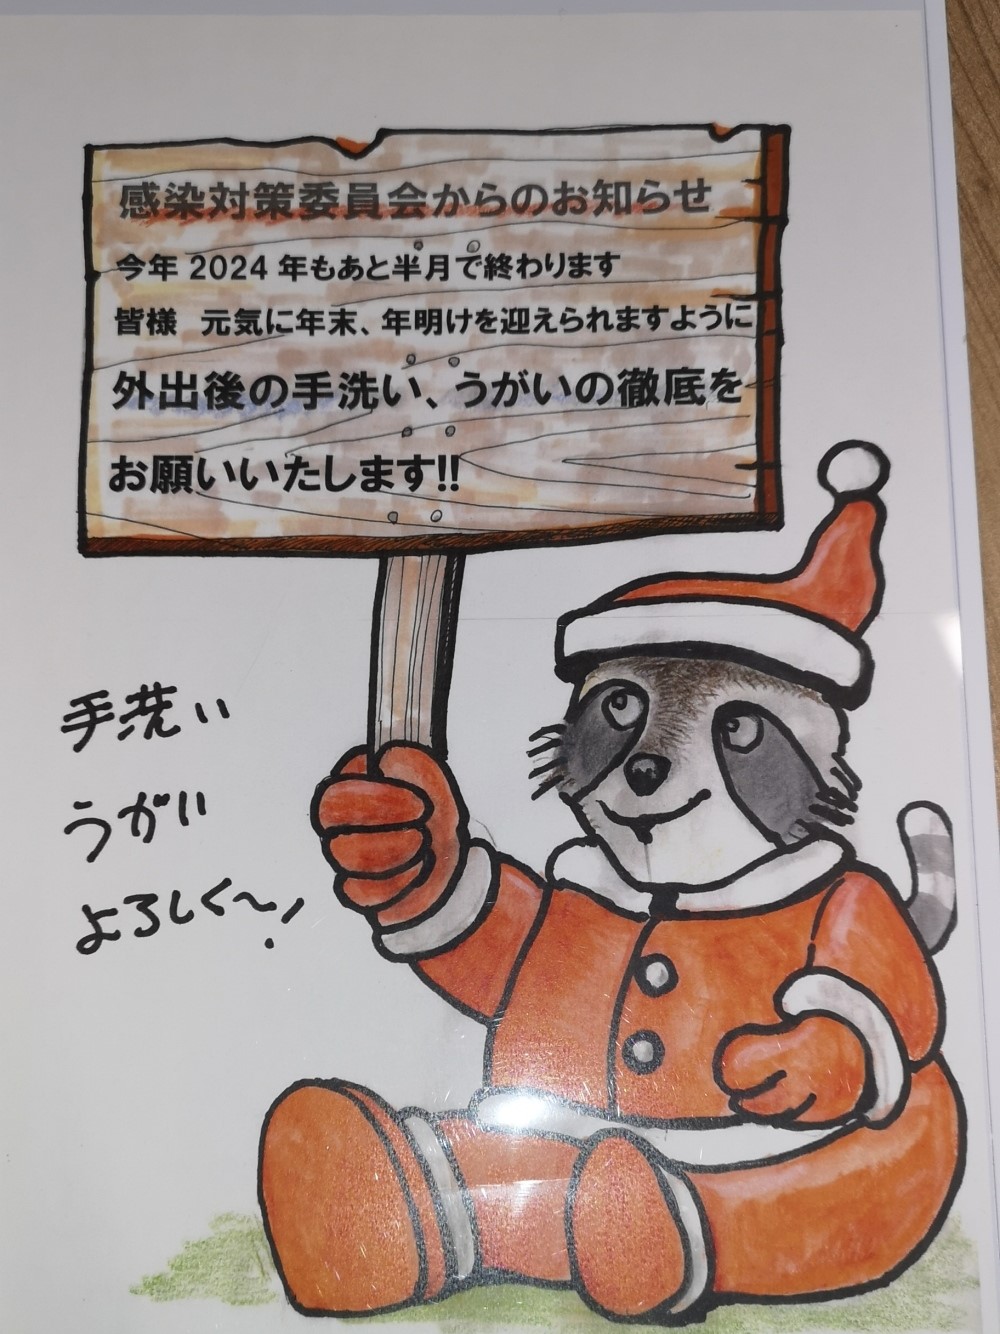 感染対策委員会からのお知らせ
今年 2024 年もあと半月で終わります
皆様　元気に年末、年明けを迎えられますように
外出後の手洗い、うがいの徹底を
お願いいたします!!
手洗い
うがい
よろしく〜!